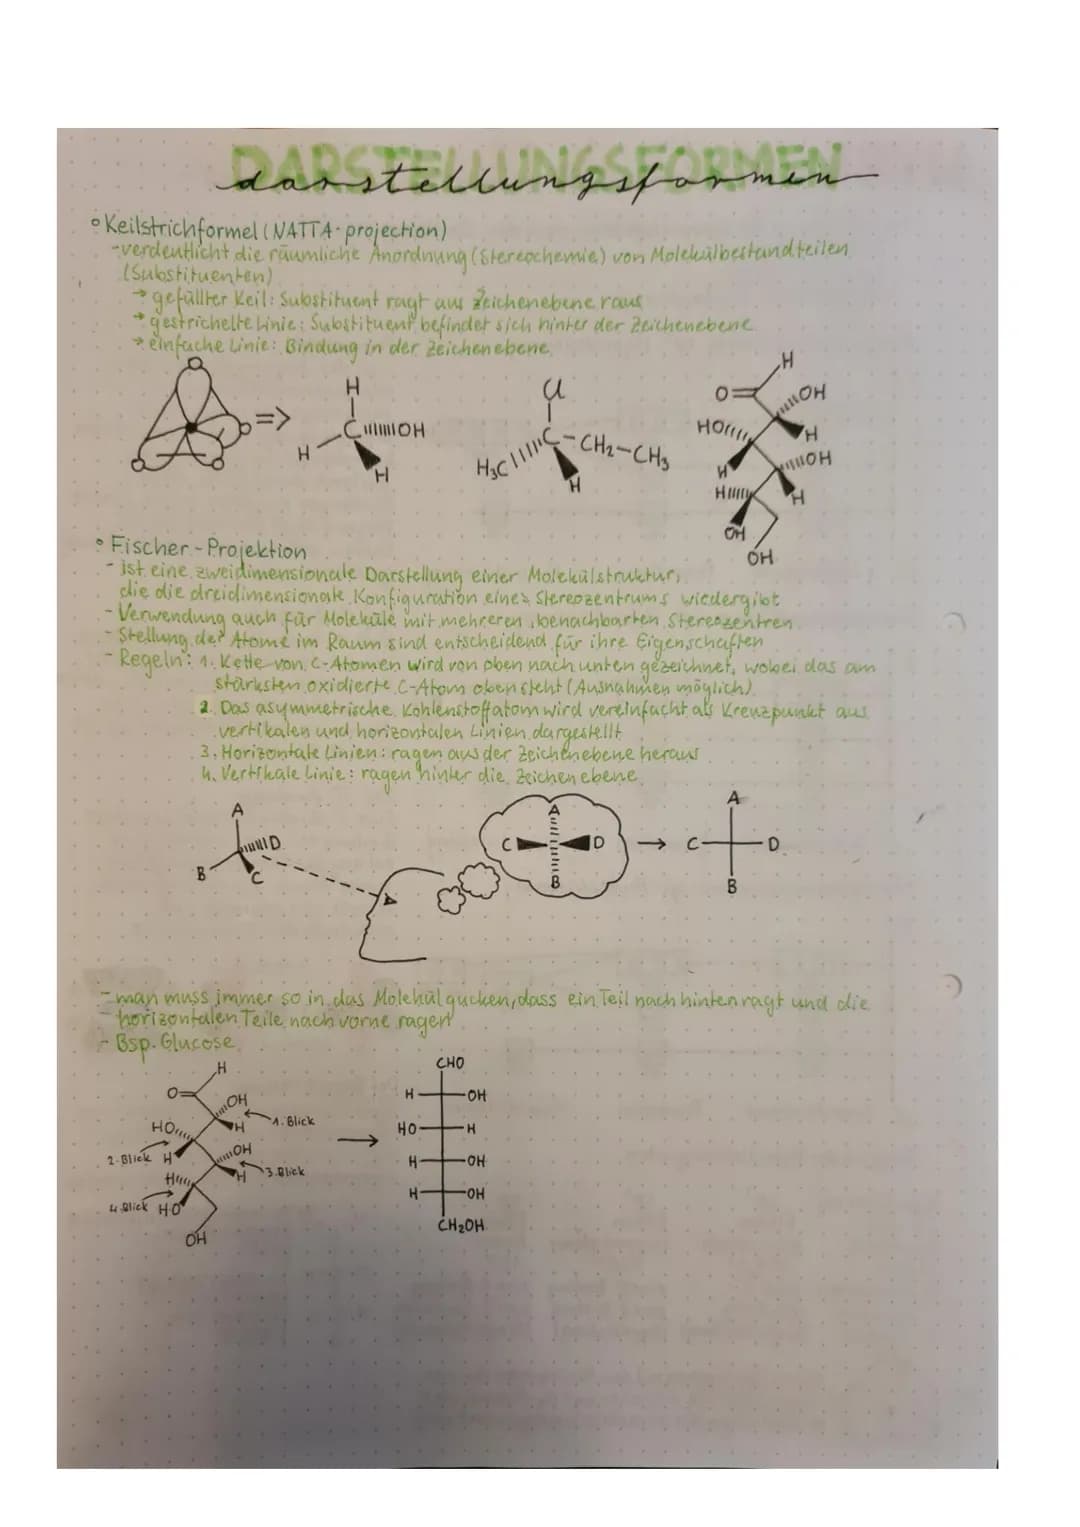 DARSTELLUNGSFORMEN
darstellungsformen
° Keilstrichformel (NATTA-projection)
- verdeutlicht die räumliche Anordnung (Stereochemie) von Molekülbestandteilen
(Substituenten)
→ gefüllter Keil: Substituent ragt aus Zeichenebene raus
→ gestrichelte Linie: Substituent befindet sich hinter der Zeichenebene
→ einfache Linie: Bindung in der Zeichenebene
H
C OH
H
H
=>
Cl
C-CH₂-CH₃
H₃C
H
H
O
OH
HO
H
H
OH
H
H
OH
OH
° Fischer-Projektion
- ist eine zweidimensionale Darstellung einer Molekülstruktur,
die die dreidimensionale Konfiguration eines Stereozentrums wiedergibt
- Verwendung auch für Moleküle mit mehreren, benachbarten Stereozentren
- Stellung der Atome im Raum sind entscheidend für ihre Eigenschaften
- Regeln: 1. Kette von C-Atomen wird von oben nach unten gezeichnet, wobei das am
stärksten oxidierte C-Atom oben steht (Ausnahmen möglich)
2. Das asymmetrische Kohlenstoffatom wird vereinfacht als Kreuzpunkt aus
vertikalen und horizontalen Linien dargestellt
3. Horizontale Linien: ragen aus der Zeichenebene heraus
4. Vertikale Linie: ragen hinter die Zeichenebene
A
D
B
C
A
C D
B
→
A
C D
B
- man muss immer so in das Molekül gucken, dass ein Teil nach hinten ragt und die
horizontalen Teile nach vorne ragen
- Bsp. Glucose
H
O
OH
H
1. Blick
HO
2. Blick H
OH
H
3. Blick
H
4. Blick HO
OH
→
CHO
H OH
HO H
H OH
H OH
CH₂OH